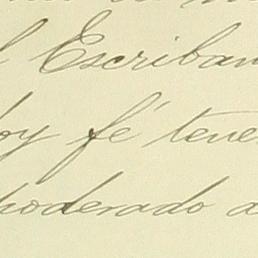 l Escriban
oy fé tene
poderado a